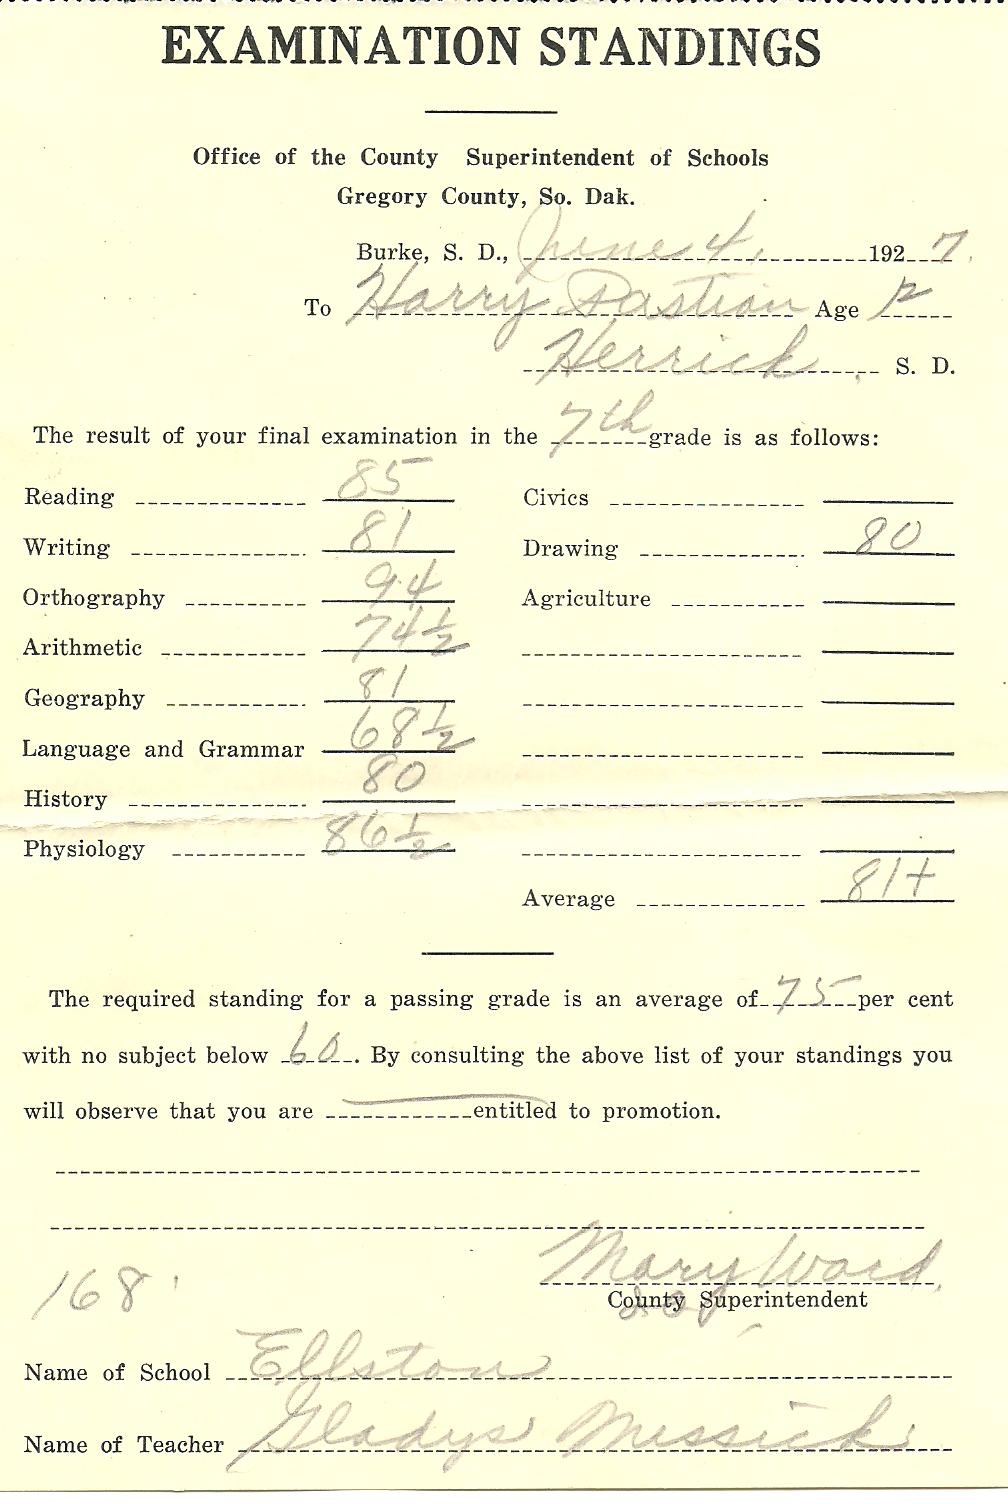 EXAMINATION STANDINGS
Office of the County Superintendent of Schools
Gregory County, So. Dak.
Burke, S. D., June 4, 1927.
To Harry Pastian Age 12
Herrick, S. D.
The result of your final examination in the 7th grade is as follows:
Reading 85 Civics
Writing 81 Drawing 80
Orthography 94 Agriculture
Arithmetic 74 1/2
Geography 81
Language and Grammar 68 1/2
History 80
Physiology 86 1/2
Average 81+
The required standing for a passing grade is an average of 75 per cent
with no subject below 60. By consulting the above list of your standings you
will observe that you are entitled to promotion.
168 Mary Ward
County Superintendent
Name of School Ellston
Name of Teacher Gladys Messick